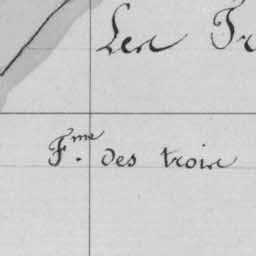 Les Tr
F.me des trois